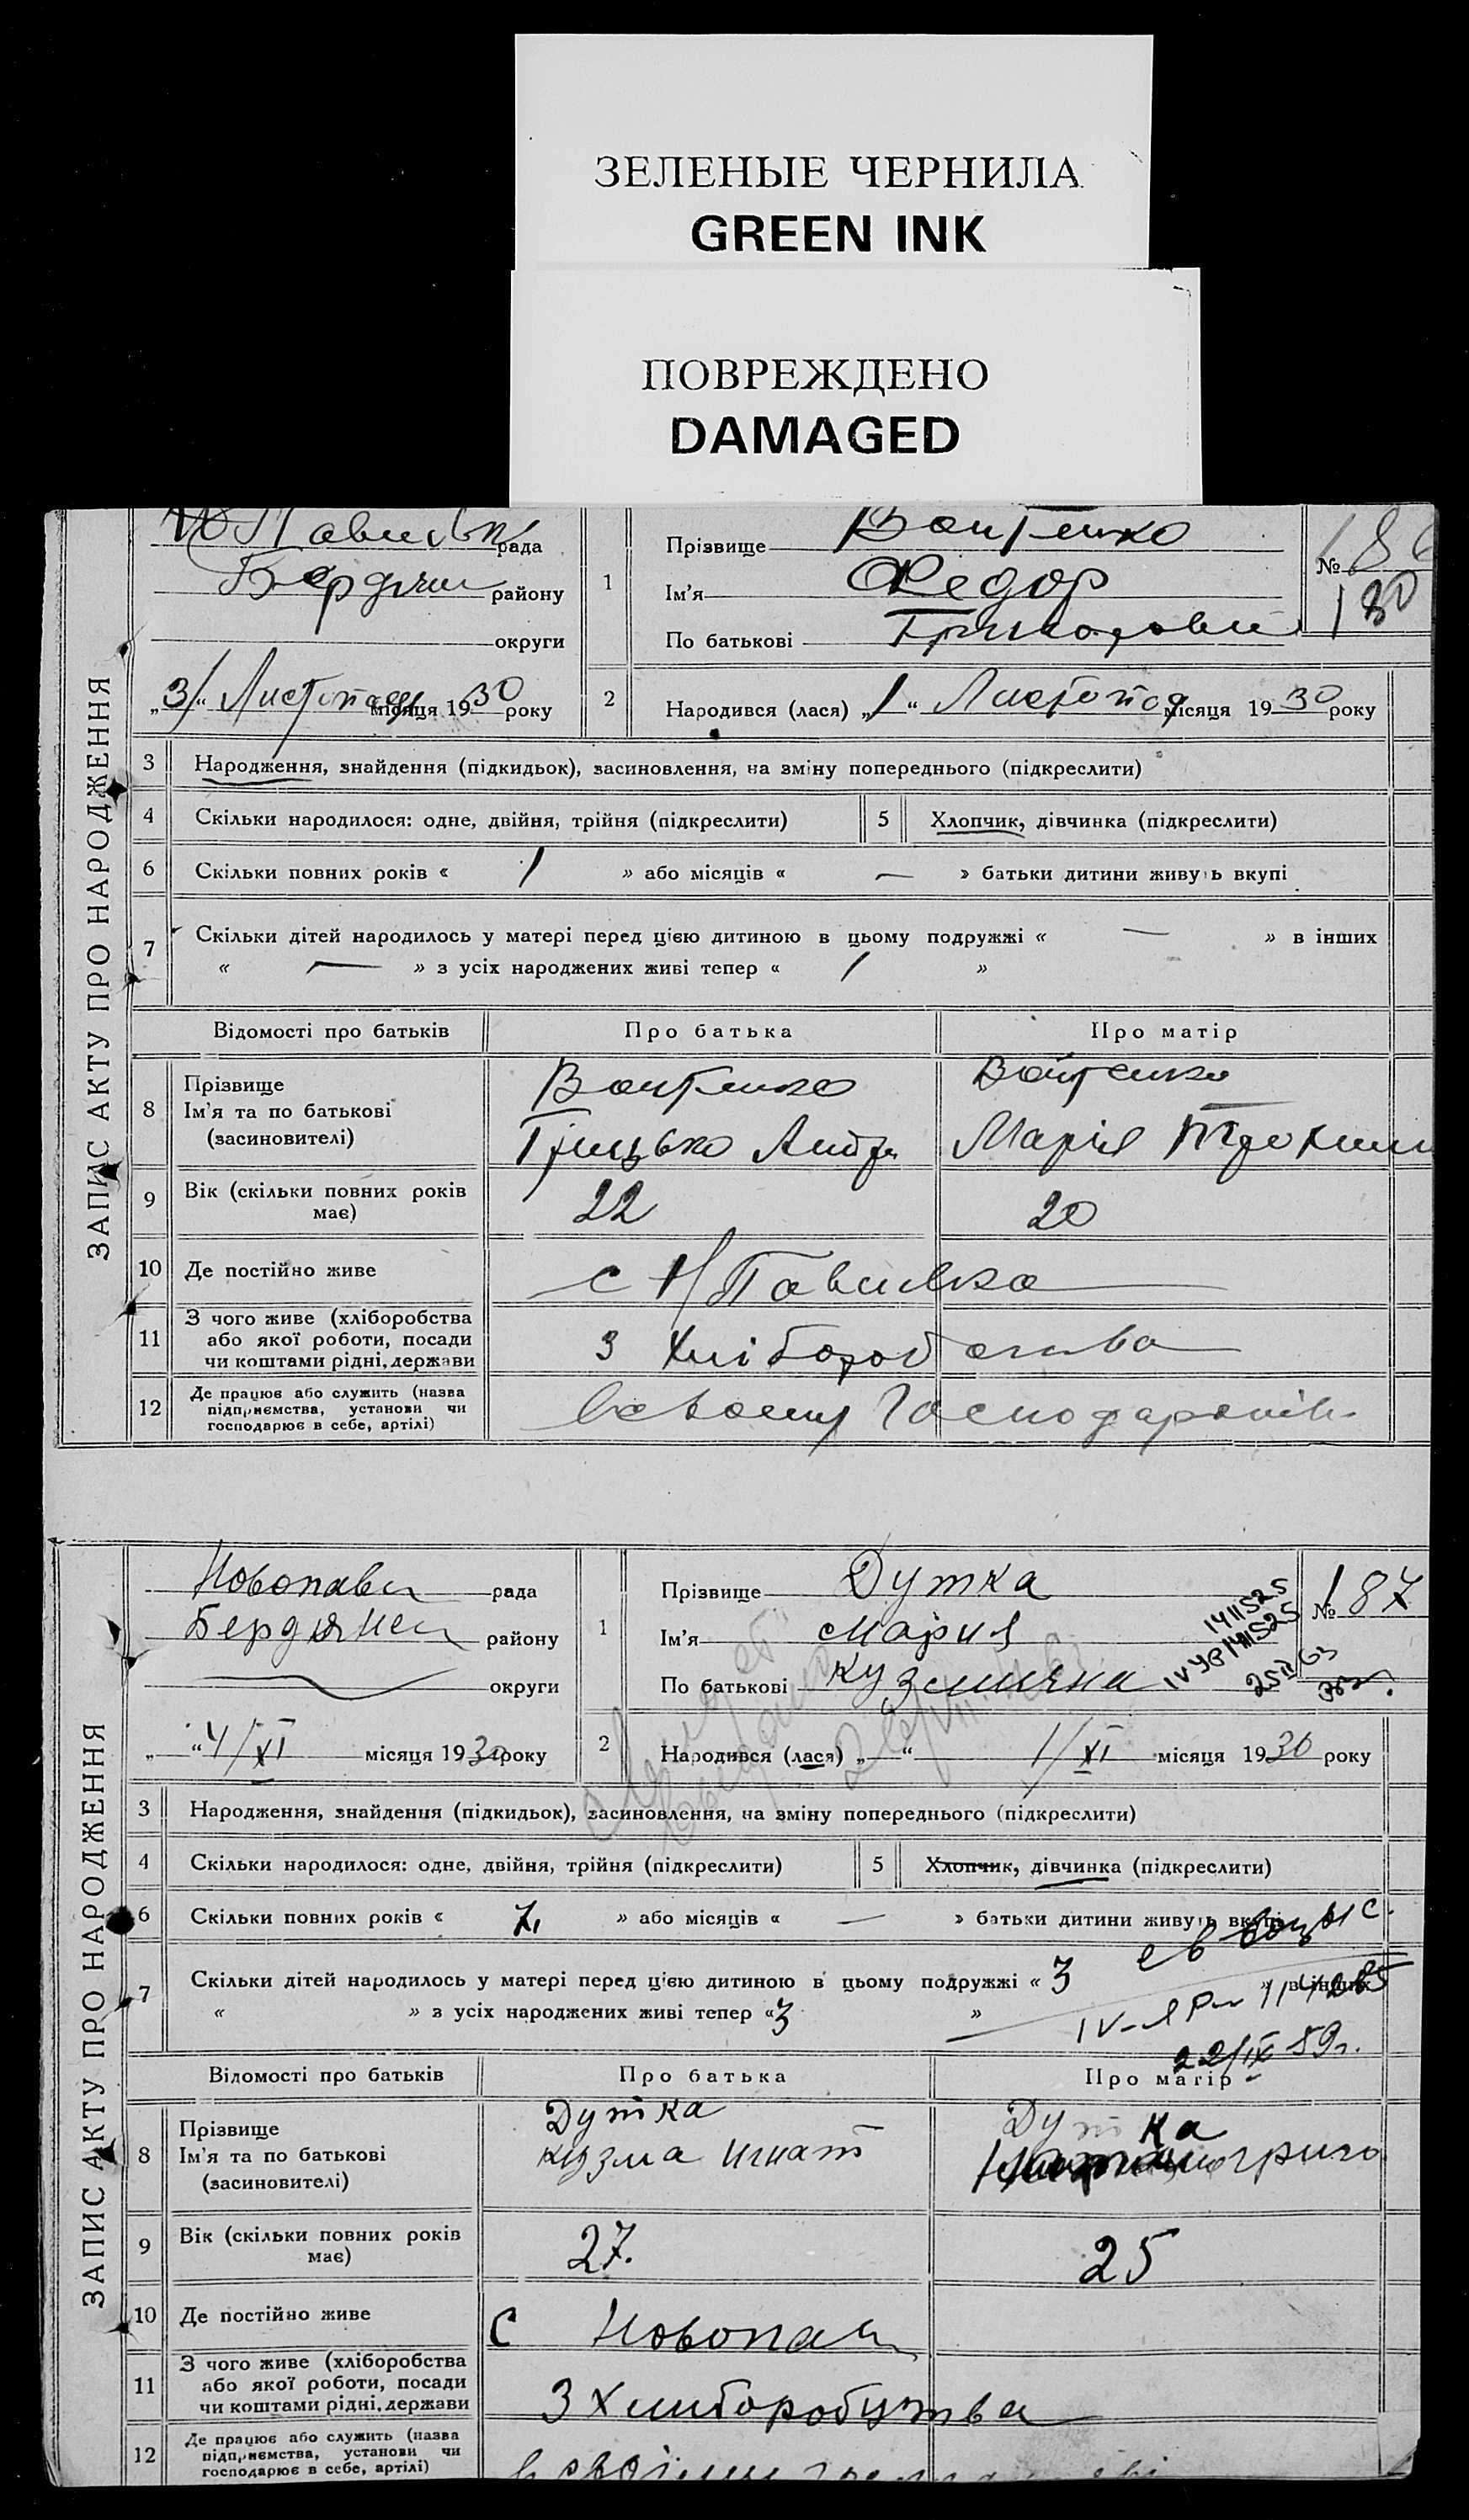 ЗЕЛЕНЫЕ ЧЕРНИЛА
GREEN INK
ПОВРЕЖДЕНО
DAMAGED
ЗАПИС АКТУ ПРО НАРОДЖЕННЯ
рада
району
округи
„3“ Листопад місяця 1930 року
1
Прізвище Войтенко
Ім'я Федор
По батькові Григорович
№ 186
180
2
Народився (лася) „1“ Листопад місяця 1930 року
3 Народження, знайдення (підкидьок), засиновлення, на зміну попереднього (підкреслити)
4 Скільки народилося: одне, двійня, трійня (підкреслити)
5 Хлопчик, дівчинка (підкреслити)
6 Скільки повних років « 1 » або місяців « — » батьки дитини живуть вкупі
7 Скільки дітей народилось у матері перед цією дитиною в цьому подружжі « — » в інших
« — » з усіх народжених живі тепер « 1 »
Відомості про батьків Про батька Про матір
8 Прізвище Войтенко Войтенко
Ім'я та по батькові Грицько Андр Марія
(засиновителі)
9 Вік (скільки повних років має) 22 20
10 Де постійно живе с Н/Павлівка
11 З чого живе (хліборобства або якої роботи, посади чи коштами рідні, держави З Хліборобства
12 Де працює або служить (назва підприємства, установи чи господарює в себе, артілі)
ЗАПИС АКТУ ПРО НАРОДЖЕННЯ
Новопавл рада
Бердянск району
округи
„ “ 4/XI місяця 1930 року
1
Прізвище Дутка
Ім'я Мария
По батькові Кузминна
№ 187
1411525
25 II 63
2
Народився (лася) „ “ 1/XI місяця 1930 року
3 Народження, знайдення (підкидьок), засиновлення, на зміну попереднього (підкреслити)
4 Скільки народилося: одне, двійня, трійня (підкреслити)
5 Хлопчик, дівчинка (підкреслити)
6 Скільки повних років « 7, » або місяців « — » батьки дитини живуть вкупі
7 Скільки дітей народилось у матері перед цією дитиною в цьому подружжі « 3 » в інших
« » з усіх народжених живі тепер « 3 »
22/IX 59г.
Відомості про батьків Про батька Про матір
8 Прізвище Дутка Дутка
Ім'я та по батькові Кузма Игнат
(засиновителі)
9 Вік (скільки повних років має) 27. 25
10 Де постійно живе С Новопавл
11 З чого живе (хліборобства або якої роботи, посади чи коштами рідні, держави З Хлиборобутва
12 Де працює або служить (назва підприємства, установи чи господарює в себе, артілі)